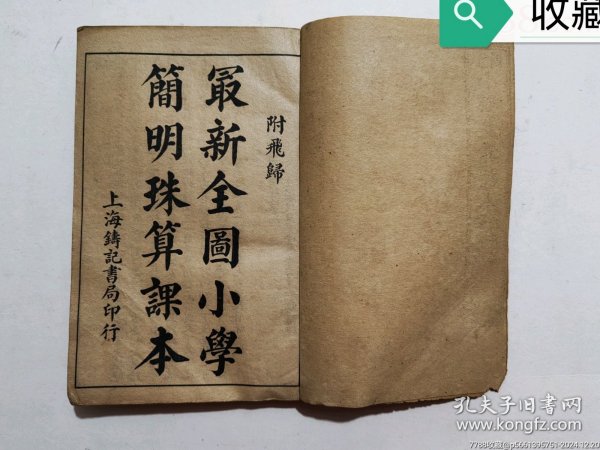 附飛歸
最新全圖小學
簡明珠算課本
上海鑄記書局印行
收藏
孔夫子旧书网
www.kongfz.com